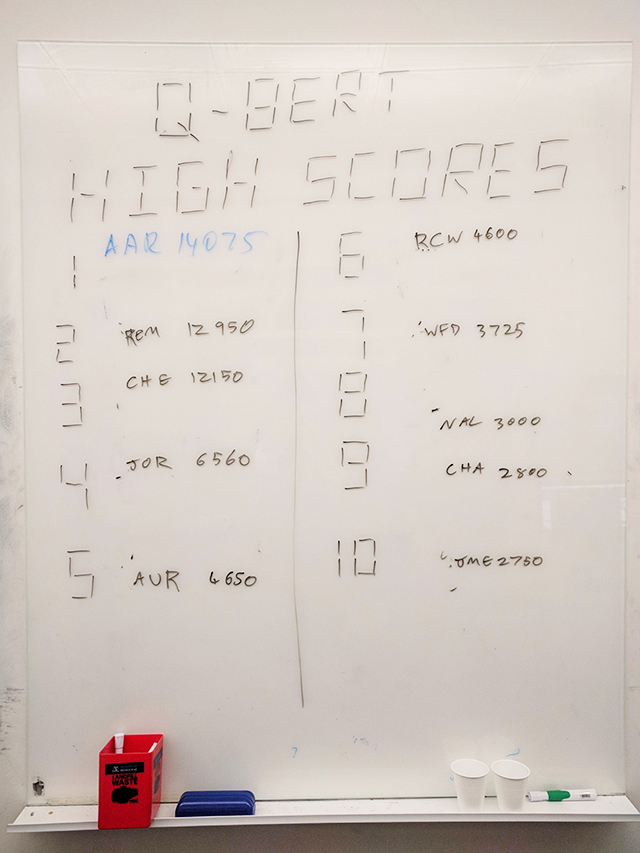 Q-BERT
HIGH SCORES
1 AAR 14075
2 REM 12950
3 CHE 12150
4 JOR 6560
5 AUR 4650
6 RCW 4600
7 WFD 3725
8 NAL 3000
9 CHA 2800
10 JME 2750
LANDFILL
WASTE